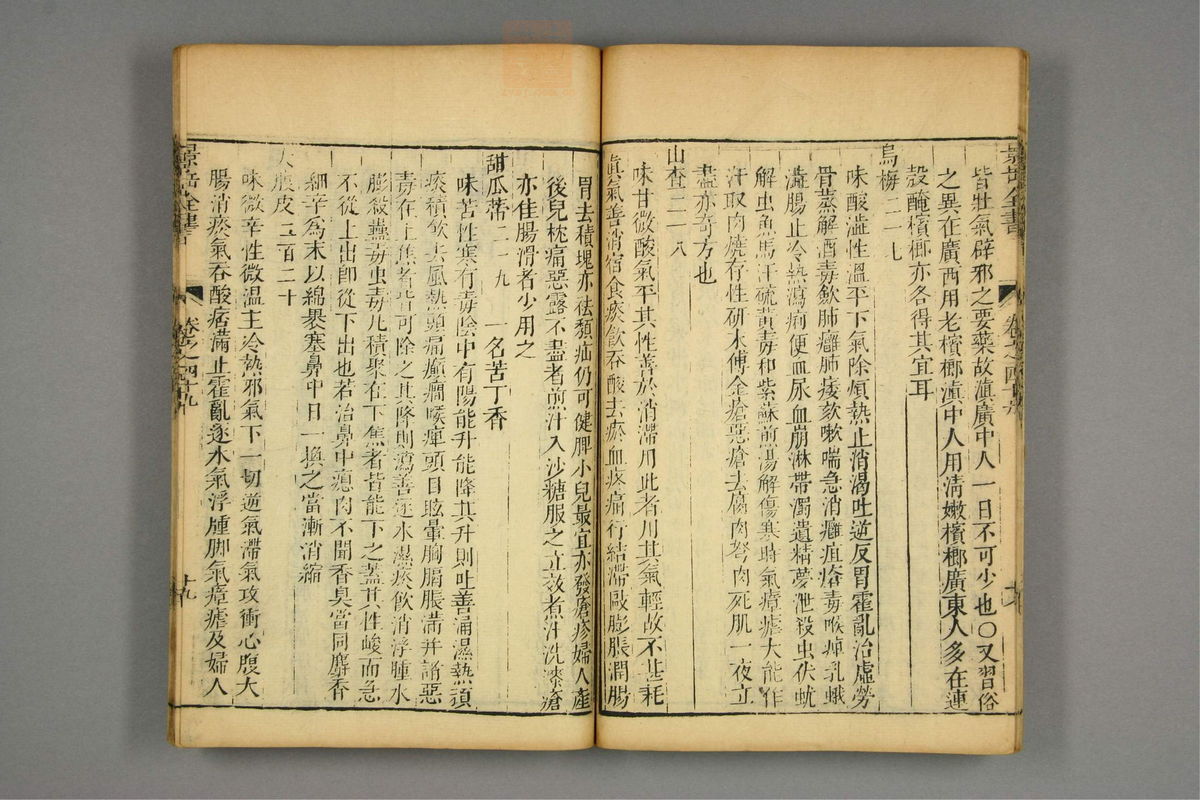 景岳全書
卷之四十九
皆壯氣辟邪之要藥故滇廣中人一日不可少也○又習俗
之異在廣西用老檳榔滇中人用清嫩檳榔廣東人多在連
殼醃檳榔亦各得其宜耳
烏梅二一七
味酸澁性溫平下氣除煩熱止消渴吐逆反胃霍亂治虛勞
骨蒸解酒毒歛肺癰肺痿欬嗽喘急消癰疽瘡毒喉痺乳蛾
澁腸止冷熱瀉痢便血尿血崩淋帶濁遺精夢泄殺虫伏蚘
解虫魚馬汗硫黃毒和紫蘇煎湯解傷寒時氣瘴瘧大能作
汗取肉燒存性研末傅金瘡惡瘡去腐肉弩肉死肌一夜立
盡亦奇方也
山查二一八
味甘微酸氣平其性善於消滯用此者用其氣輕故不甚耗
眞氣善消宿食痰飲吞酸去瘀血疼痛行結滯敺膨脹潤腸
胃去積塊亦祛㿗疝仍可健脾小兒最宜亦發瘡疹婦人產
後兒枕痛惡露不盡者煎汁入沙糖服之立效煮汁洗漆瘡
亦佳腸滑者少用之
甜瓜蒂二一九 一名苦丁香
味苦性寒有毒陰中有陽能升能降其升則吐善涌濕熱頑
痰積飲去風熱頭痛癲癇喉痺頭目眩暈胸膈脹滿并諸惡
毒在上焦者皆可除之其降則瀉善逐水濕痰飲消浮腫水
膨殺蠱毒虫毒凡積聚在下焦者皆能下之蓋其性峻而急
不從上出即從下出也若治鼻中瘜肉不聞香臭當同麝香
細辛為末以綿褁塞鼻中日一換之當漸消縮
大腹皮二百二十
味微辛性微温主冷熱邪氣下一切逆氣滯氣攻衝心腹大
腸消痰氣吞酸痞滿止霍亂逐水氣浮腫脚氣瘴瘧及婦人
景岳全書
卷之四十九
十九